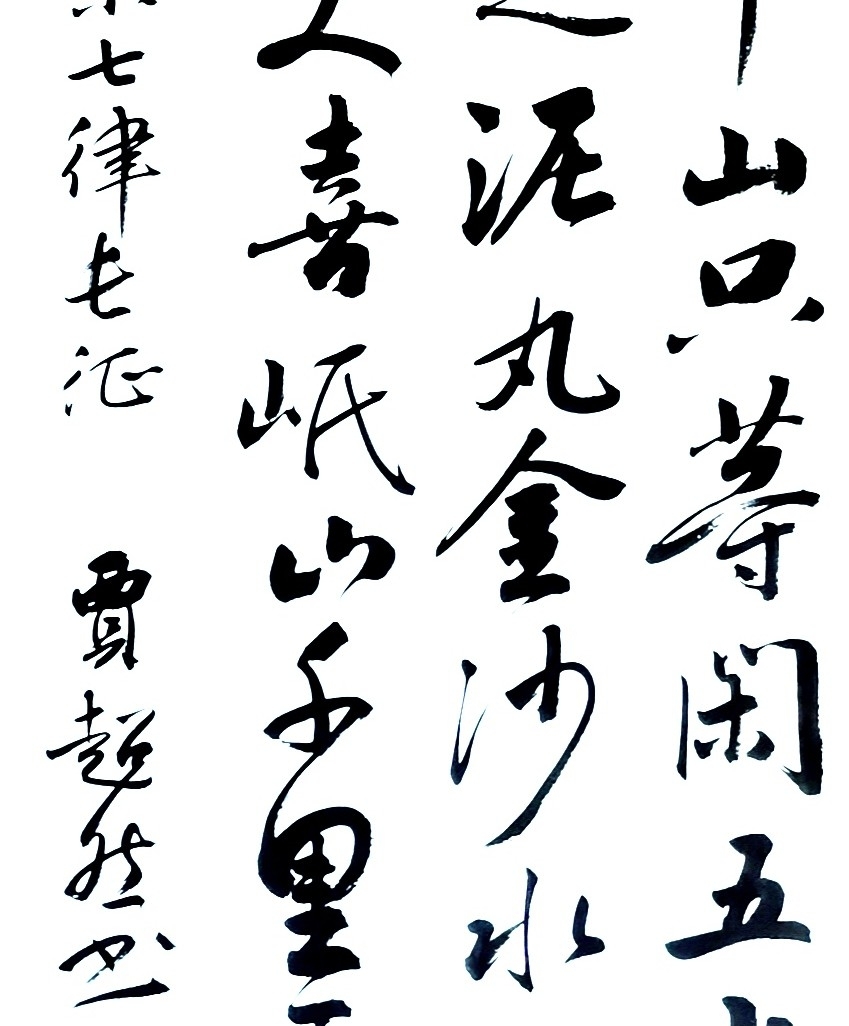 山只等闲五
泥丸金沙水
人喜岷山千里
七律长征 贾超然书